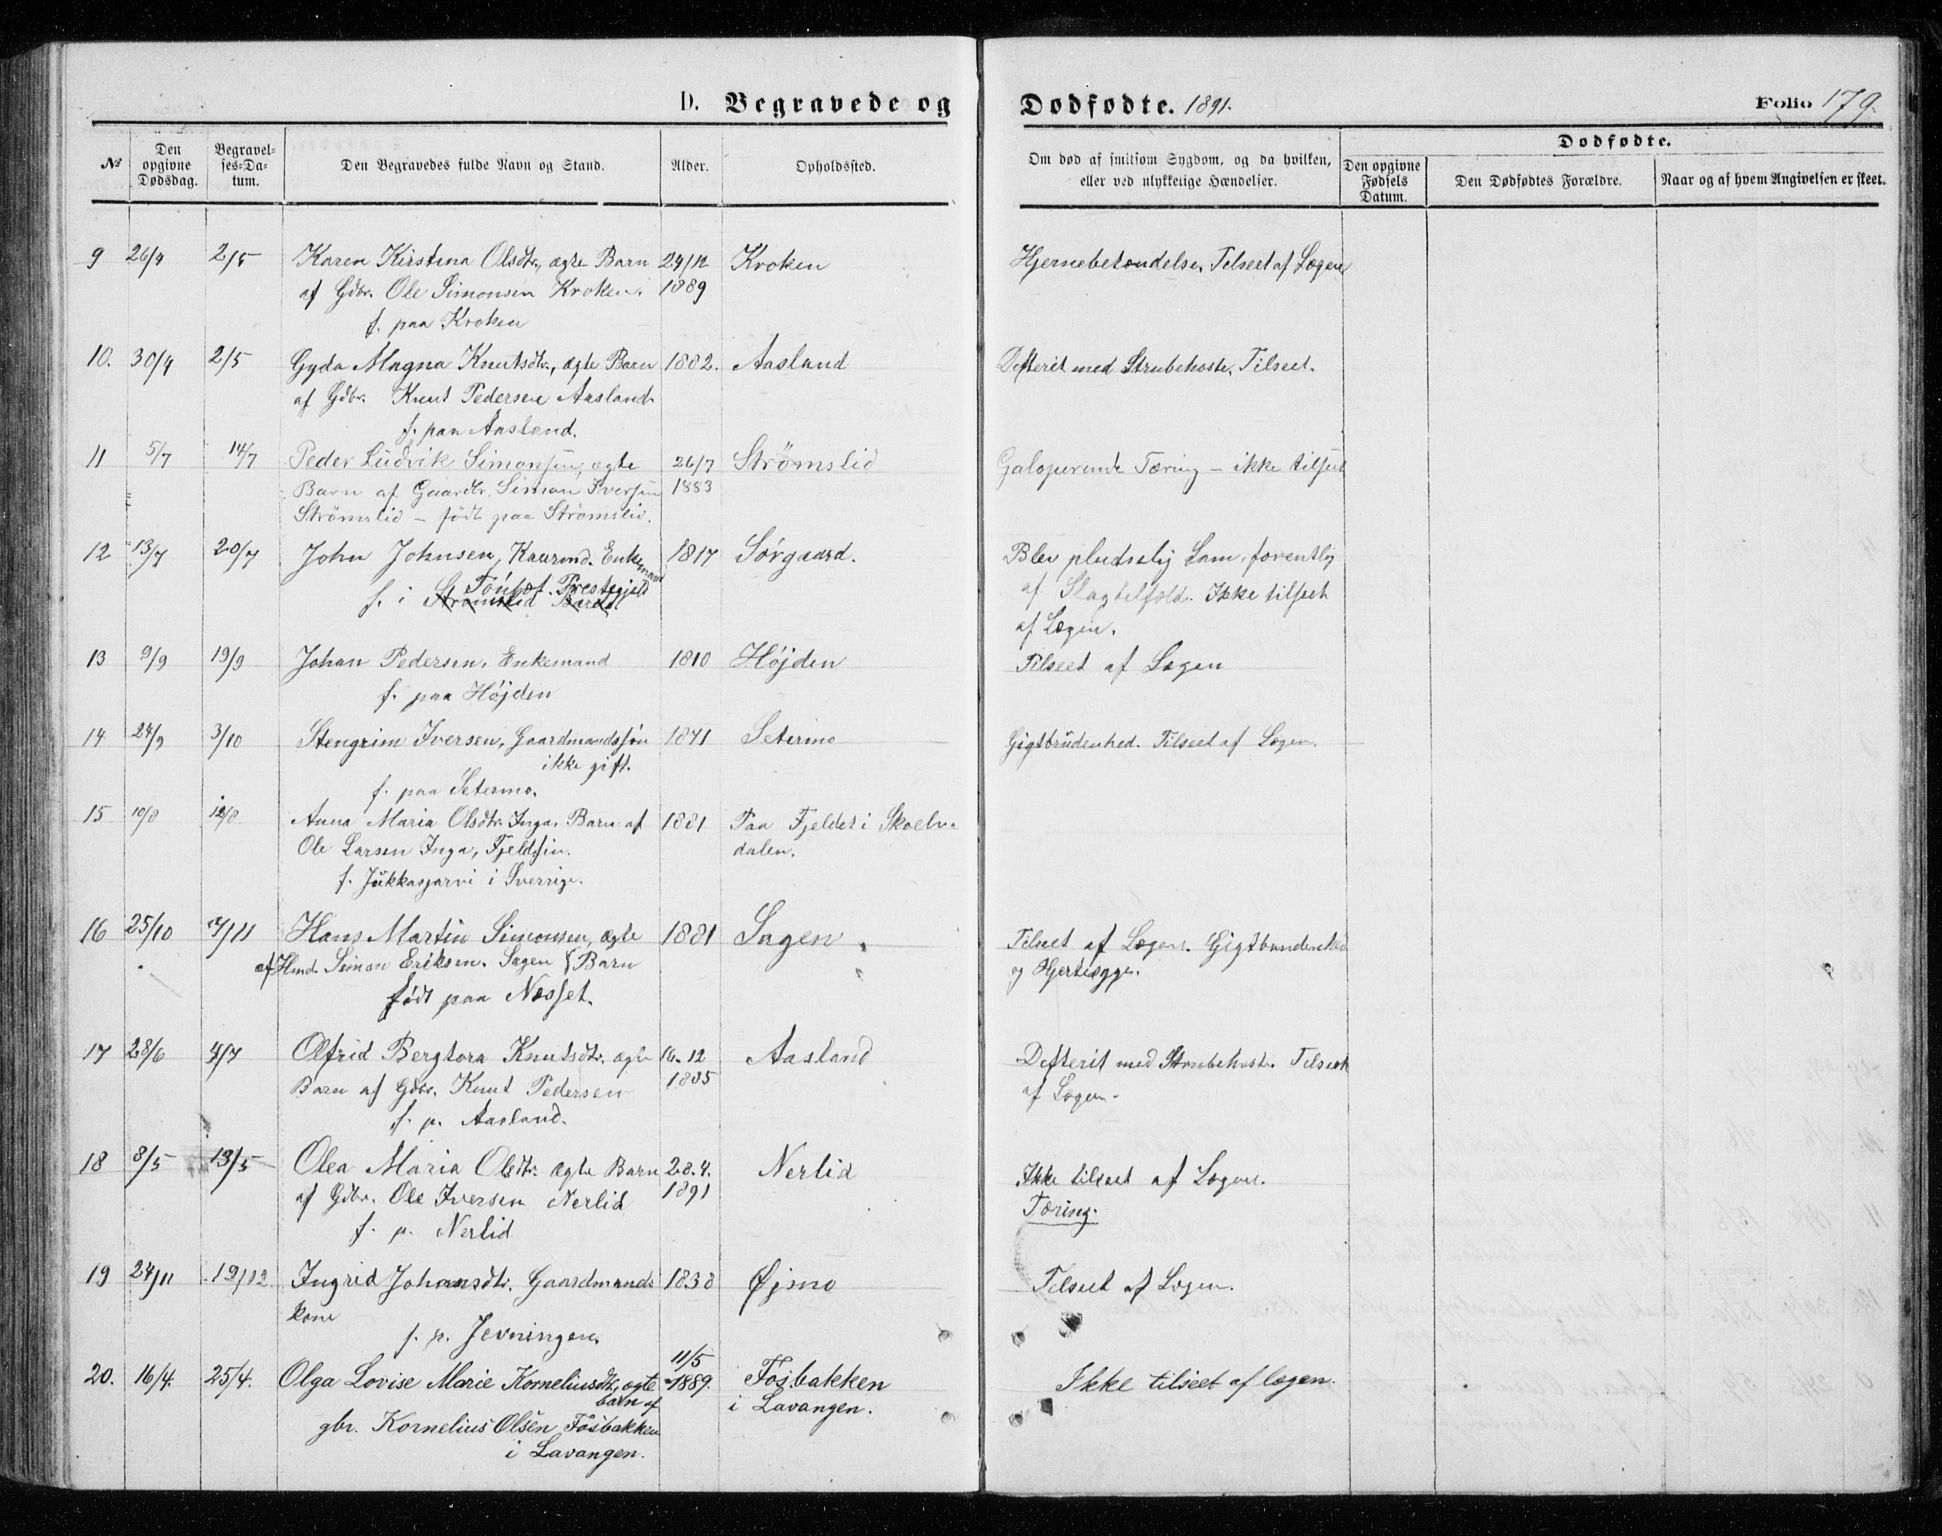 D. Begravede og Dødfødte. 1891. Folio 179.
Dødfødte.
№ Den opgivne Dødsdag. Begravelses-Datum. Den Begravedes fulde Navn og Stand. Alder. Opholdssted. Om død af smitsom Sygdom, og da hvilken, eller ved ulykkelige Hændelser. Den opgivne Fødsels Datum. Den Dødfødtes Forældre. Naar og af hvem Angivelsen er skeet.
9 26/4 2/5 Karen Kirstina Olsdtr., ægte Barn 24/12 Kroken Hjernebetændelse, Tilseet af Lægen
af Gdbr. Ole Simonsen Kroken. 1889
f. paa Kroken
10. 30/4 2/5 Gyda Magna Knutsdtr., ægte Barn 1882. Aasland Defterit med Strubehoste, Tilseet.
af Gdbr. Knut Pedersen Aasland
f. paa Aasland.
11 5/7 14/7 Peder Ludvik Simonsen, ægte 26/7 Strömslid Galoperende Tæring – ikke tilseet
Barn af Gaardbr. Simon Iversen 1883
Strömslid – født paa Strömslid.
12 13/7 20/7 John Johnsen, Kaarmd. Enkemand 1817 Sörgaard. Blev pludselig Lam, foventlig
Tönset Prestegjeld af Slagtilfæld. Ikke tilseet
f. i Strömslid Bardo af Lægen.
13 9/9 19/9 Johan Pedersen, Enkemand 1810 Højden Tilseet af Lægen
f. paa Højden
14 24/9 3/10 Stengrim Iversen, Gaardmandssön 1871 Setermo Gigtbrudenhed. Tilseet af Lægen.
ikke gift.
f. paa Setermo.
15 10/8 12/8 Anna Maria Olsdtr. Inga, Barn af 1881 Paa Fjeldet i Skoelv-
Ole Larsen Inga, Fjeldfin. dalen.
f. Jukkasjarvi i Sverrige.
16 25/10 7/11 Hans Martin Simonsen, ægte 1881 Sagen Tilseet af Lægen. Gigtbundenhed
af Hmd. Simon Eriksen. Sagen Barn og Hjertesyge.
født paa Næsset.
17 28/6 4/7 Olfrid Bergtora Knutsdtr. ægte 16-12 Aasland Defterit med Strubehoste. Tilseet
Barn af Gdbr. Knut Pedersen 1885 af Lægen.
f. p. Aasland.
18 8/5 13/5 Olea Maria Olsdtr. ægte Barn 28.4. Nerlid Ikke tilseet af Lægen.
af Gdbr. Ole Iversen Nerlid 1891 Tæring.
f. p. Nerlid
19 24/11 19/12 Ingrid Johansdtr. Gaardmands 1838 Øjmo Tilseet af Lægen.
kone
f. p. Jevningen.
20. 16/4. 25/4. Olga Lovise Marie Korneliusdtr, ægte 11/5 1889. Fosbakken Ikke tilseet af lægen.
barn af i Lavangen.
gbr. Kornelius Olsen Fosbakken
i Lavangen.